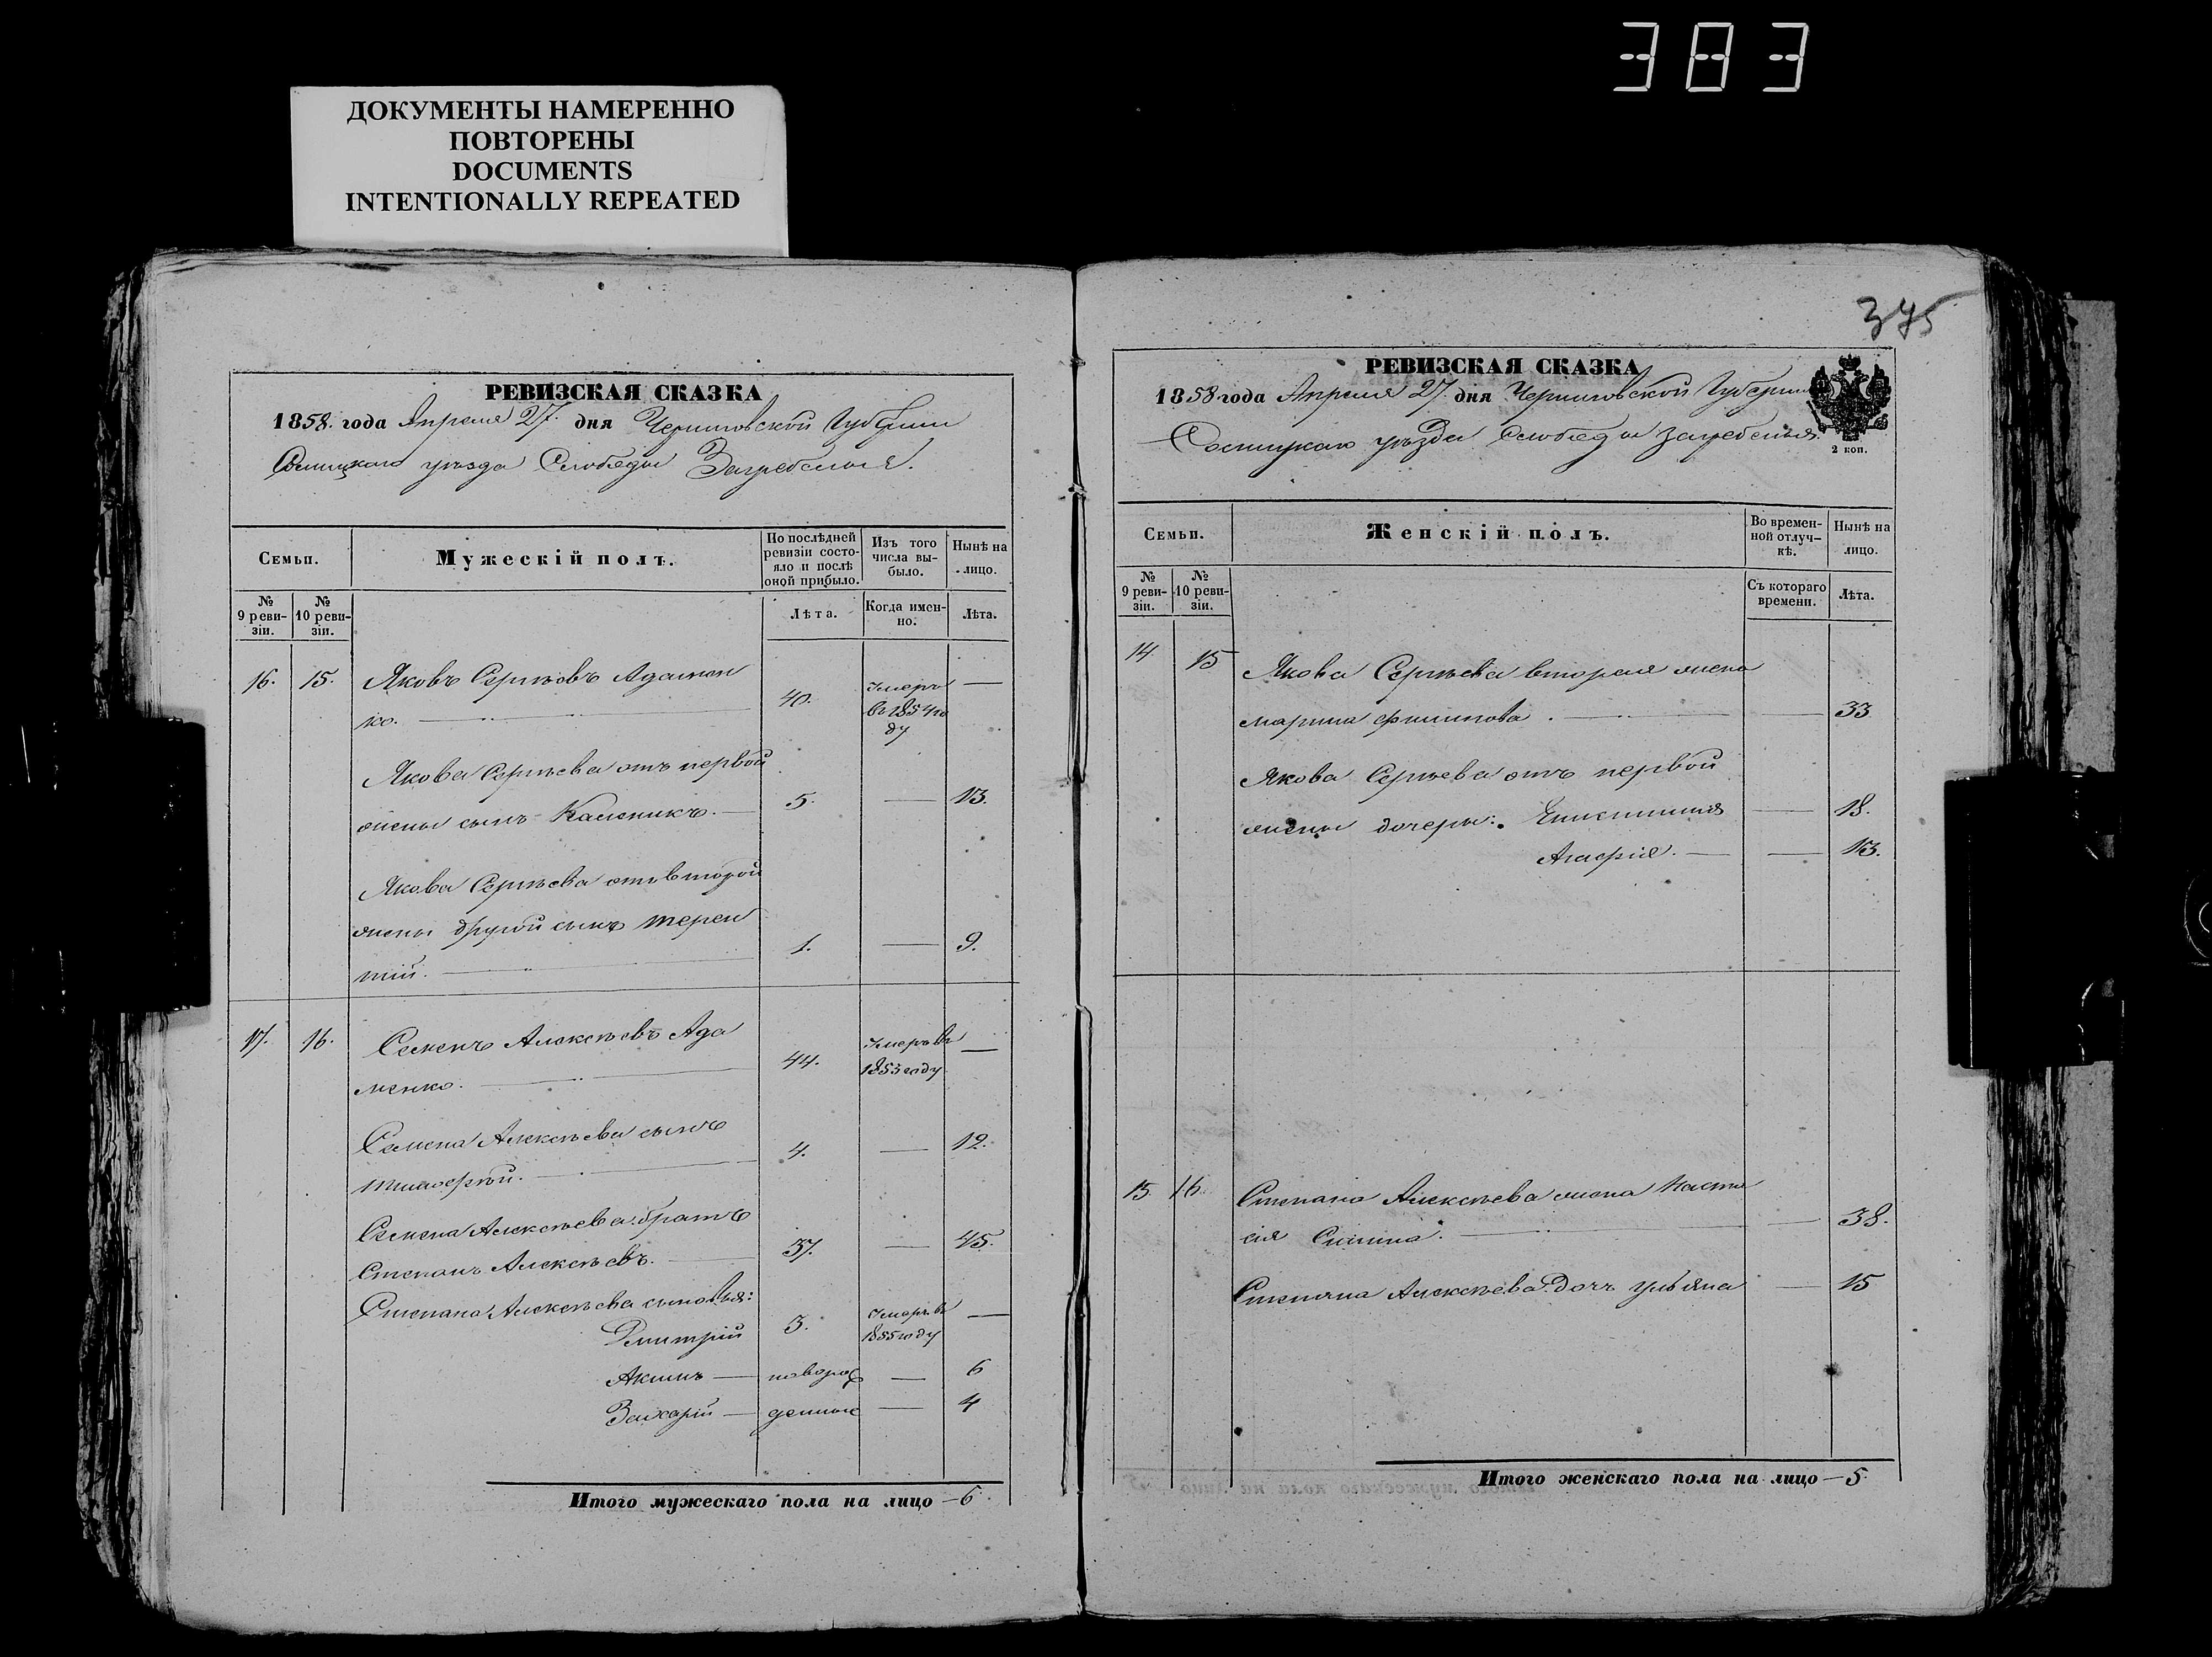 383
ДОКУМЕНТЫ НАМЕРЕННО
ПОВТОРЕНЫ
DOCUMENTS
INTENTIONALLY REPEATED
РЕВИЗСКАЯ СКАЗКА
1858. года Апреля 27. дня Черниговской Губернии
Сосницкаго уѣзда Слободы Загребелья.
Семьи.
Мужескій полъ.
По послѣдней ревизіи состояло и послѣ оной прибыло.
Изъ того числа выбыло.
Нынѣ на лицо.
№ 9 ревизіи.
№ 10 ревизіи.
Лѣта.
Когда именно.
Лѣта.
16. 15. Яковъ Сергѣевъ Адамен
ко. 40. Умеръ въ 1854 году —
Якова Сергѣева отъ первой
жены сынъ Каленикъ. — 5. — 13.
Якова Сергѣева отъ второй
жены другой сынъ Терен
тій. 1. — 9.
17. 16. Семенъ Алексѣевъ Ада
менко. 44. Умеръ въ 1853 году —
Семена Алексѣева сынъ
Тимофѣй. 4. — 12.
Семена Алексѣева братъ
Степанъ Алексѣевъ. 37. — 45.
Степана Алексѣева сыновья:
Дмитрій 3. Умеръ въ 1855 году —
Акимъ — новорож — 6
Захарій — денные — 4
Итого мужескаго пола на лицо — 6.
375
РЕВИЗСКАЯ СКАЗКА
1858 года Апреля 27. дня Черниговской Губернии
Сосницкаго уѣзда Слободы Загребелья.
2 коп.
Семьи.
Женскій полъ.
Во временной отлучкѣ.
Нынѣ на лицо.
№ 9 ревизіи.
№ 10 ревизіи.
Съ котораго времени.
Лѣта.
14 15 Якова Сергѣева вторая жена
Марина Филипова. — 33
Якова Сергѣева отъ первой
жены дочеры: Епистимия — 18.
Агафія. — — 13.
15. 16. Степана Алексѣева жена Наста
сия — 38.
Степана Алексѣева дочь Ульяна — 15
Итого женскаго пола на лицо — 5.